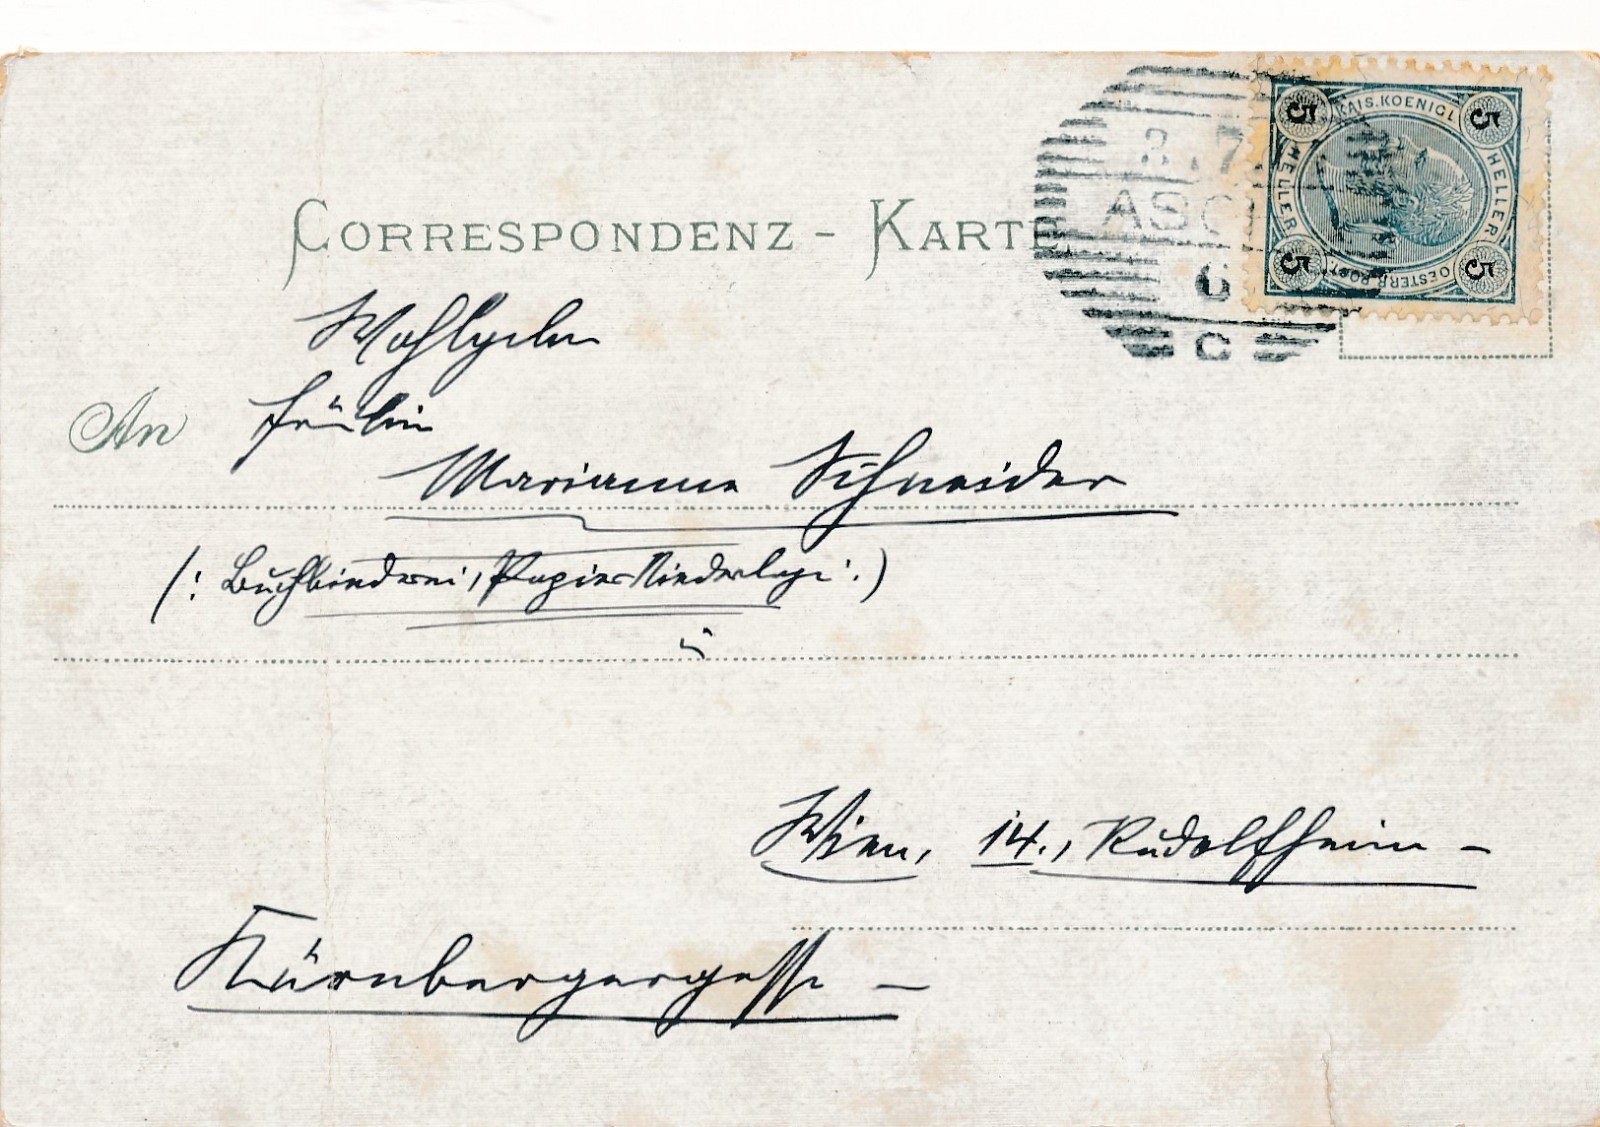 CORRESPONDENZ - KARTE
KAIS. KOENIGL.
HELLER
HELLER
OESTERR. POST.
5
5
5
5
.7.
ASC
6
C
Wohlgeborn
An
Fräulein
Marianne Schneider
(: Buchbinderei, Papier Niederlage :)
Wien, 14., Rudolfsheim -
Kürnbergergasse -